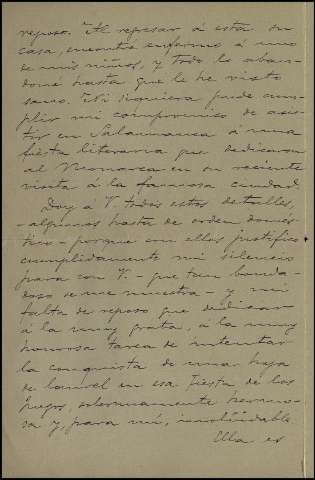 reposo. Al regresar á esta su
casa, encontré enfermo á uno
de mis niños, y todo lo aban-
doné hasta que le he visto
sano. Ni siquiera pude cum-
plir mi compromiso de asis-
tir en Salamanca á una
fiesta literaria que dedicaron
al Monarca en su reciente
visita á la famosa ciudad.
Doy á V. todos estos detalles,
-algunos hasta de orden domés-
tico- porque con ellos justifico
cumplidamente mi silencio
para con V. - que tan bonda-
doso se me muestra - y mi
falta de reposo que dedicar
á la muy grata, á la muy
honrosa tarea de intentar
la conquista de una hoja
de laurel en esa Fiesta de los
Juegos, soberanamente hermo-
sa y, para mí, inolvidable
Ella es